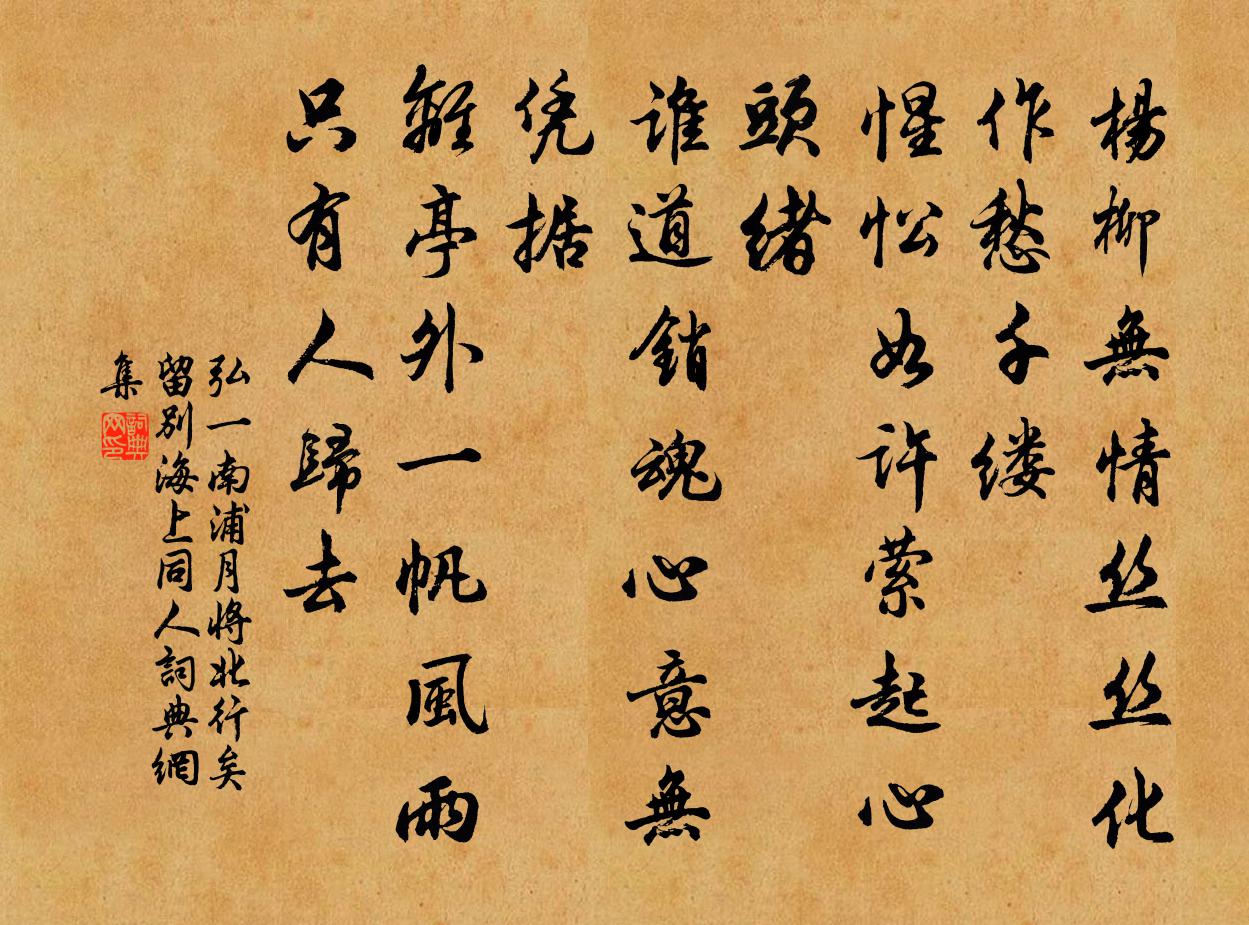 楊柳無情丝丝化
作愁千缕
惺忪如许萦起心
頭緒
谁道銷魂心意無
凭据
離亭外一帆風雨
只有人歸去
弘一南浦月将北行矣
留别海上同人詞典網
集
詞典网印